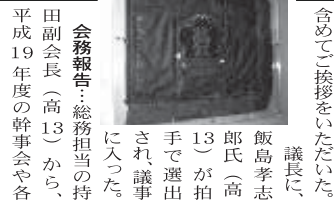 含めてご挨拶をいただいた。
議長に、
飯島孝志
郎氏（高
13）が拍
手で選出
され、議事
に入った。
会務報告…総務担当の持
田副会長（高13）から、
平成19年度の幹事会や各